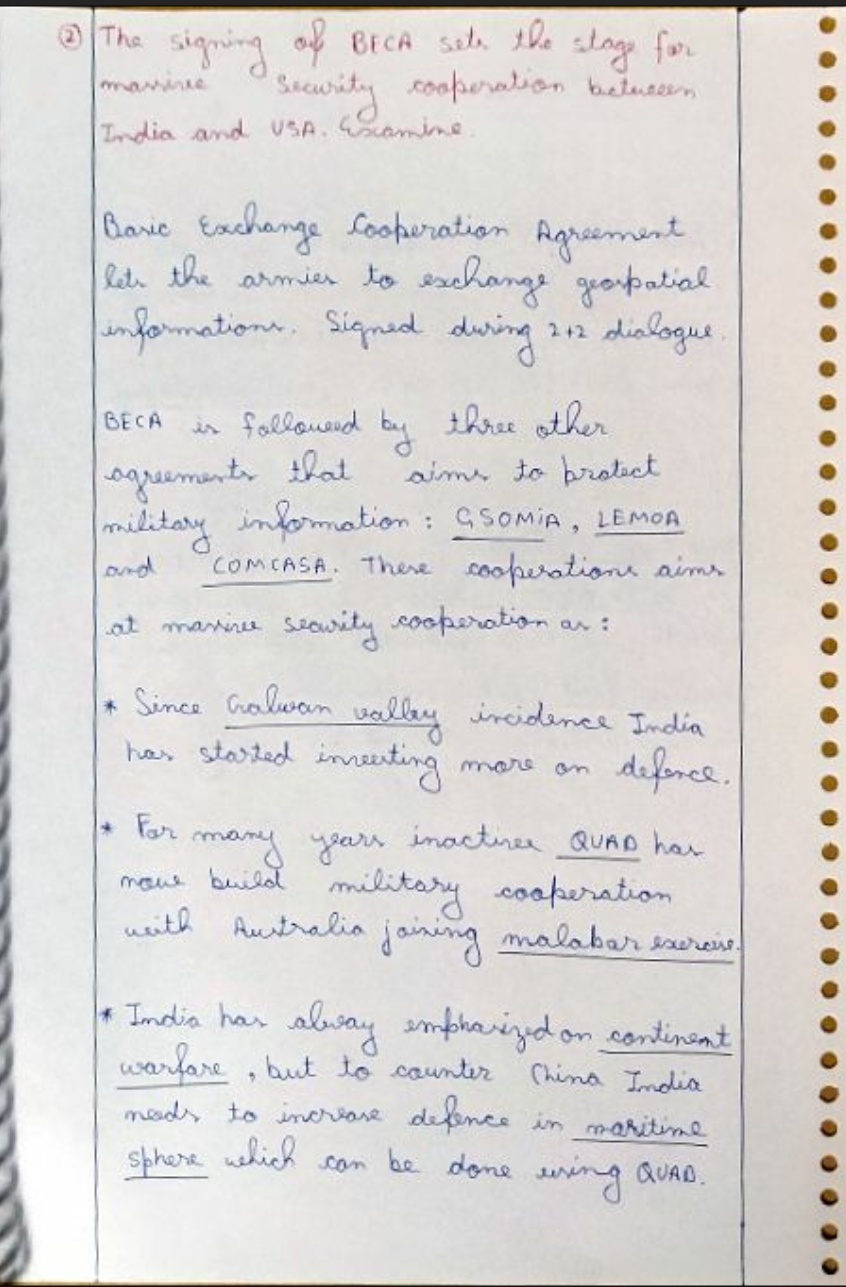 ② The signing of BECA sets the stage for
massive security cooperation between
India and USA. Examine.
Basic Exchange Cooperation Agreement
lets the armies to exchange geospatial
informations. Signed during 2+2 dialogue.
BECA is followed by three other
agreements that aims to protect
military information : GSOMiA, LEMOA
and COMCASA. These cooperations aims
at massive security cooperation as :
* Since Galwan valley incidence India
has started investing more on defence.
* For many years inactive QUAD has
now build military cooperation
with Australia joining malabar exercise.
* India has alway emphasized on continent
warfare, but to counter China India
needs to increase defence in maritime
sphere which can be done using QUAD.